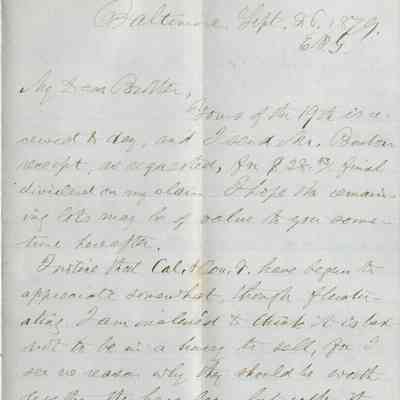 Baltimore Sept. 26. 1879.
E.N.G.
My Dear Brother,
Yours of the 19th is re-
ceived to day, and I send Mr. Benton
receipt, as requested, for $ 28. final
dividend on my claim. I hope the remain-
ing lots may be of value to you some-
time hereafter.
I notice that Cal. & Con. V. have begun to
appreciate somewhat, though fluctu-
ating. I am inclined to think it is best
not to be in a hurry to sell, for I
see no reason why they should be worth